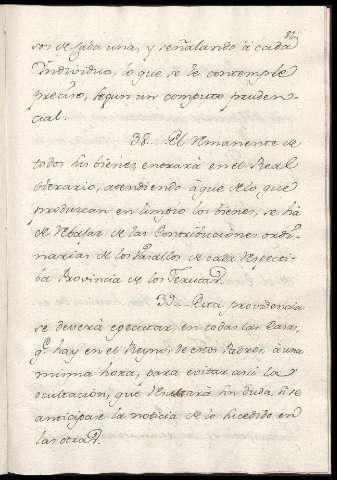 86
sos de cada una, y señalando à cada
Individuo, lo que se le contemple
preciso, segun un computo pruden-
cial.
38. El remanente de
todos sus bienes, entrará en el Real
Herario, atendiendo à que de lo que
produzcan en limpio los bienes, se há
de rebajar de las Contribuciones ordi-
narias de los Vasallos de cada respecti-
va Provincia de los Jesuitas.
39. Esta providencia
se deverá egecutar en todas las Casas,
q.e hay en el Reyno, de estos Padres, à una
misma hora, para evitar assi la
ocultacion, que resultará sin duda, si se
anticipase la noticia de lo sucedido en
las otras.